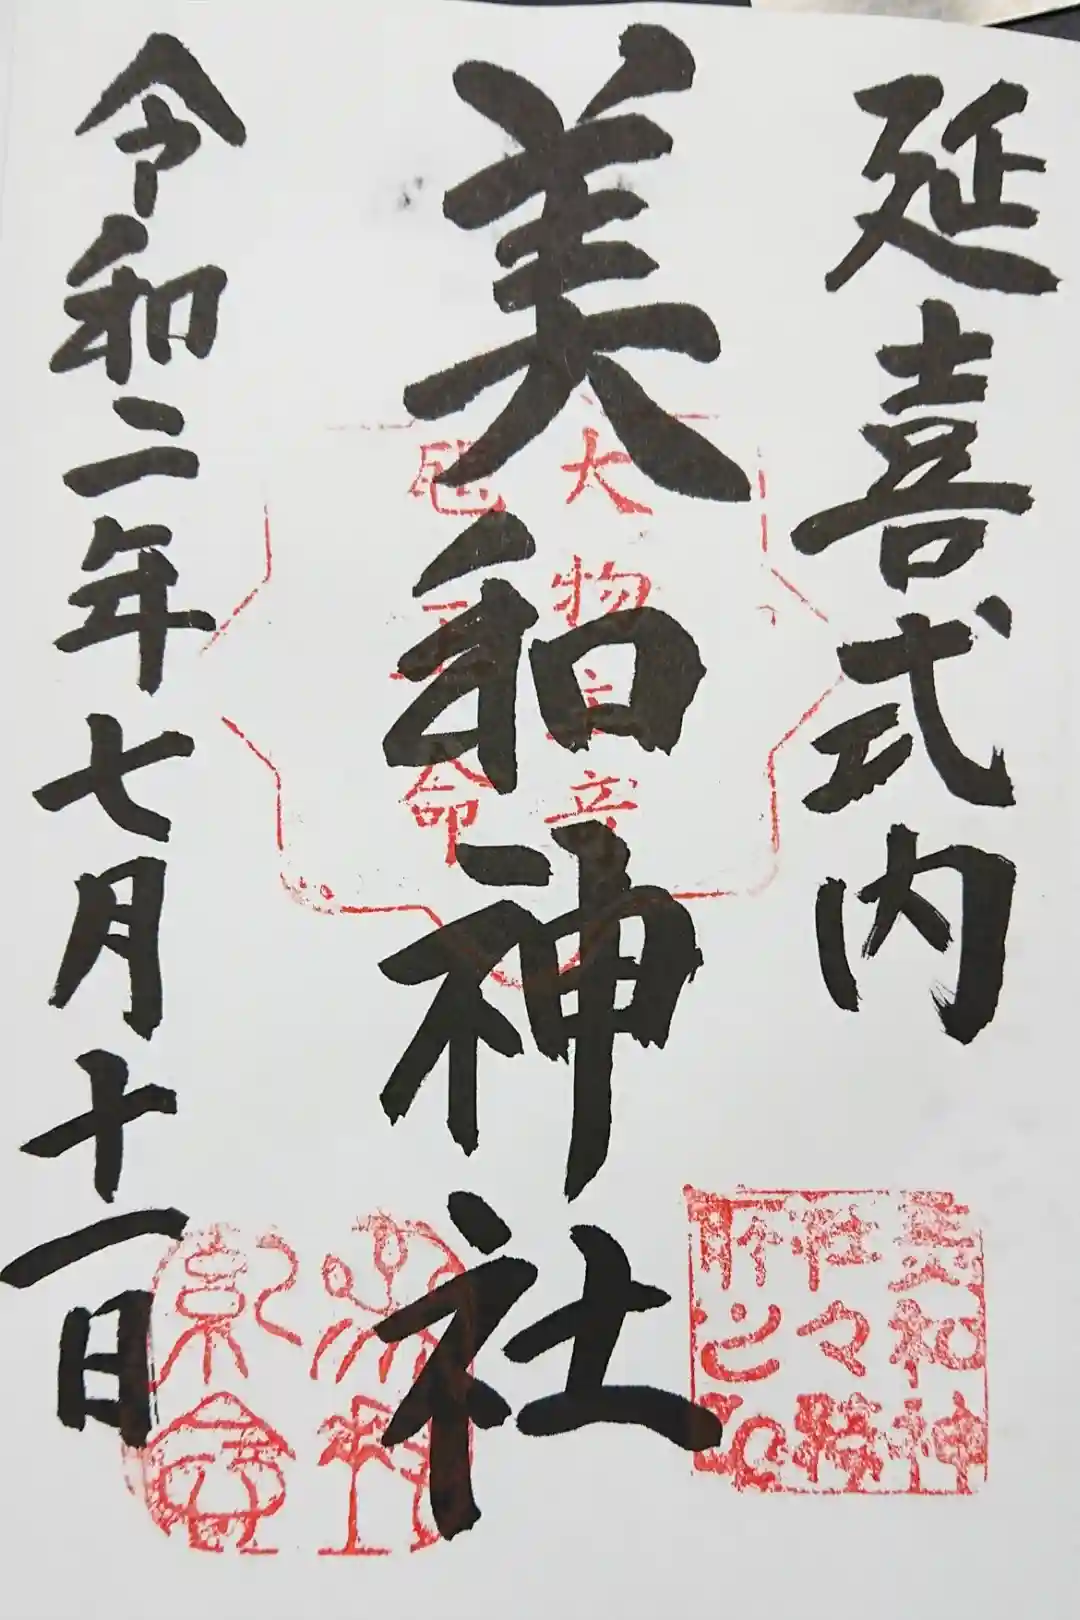 延喜式内
美和神社
大物主
命
美和神
社々務
所之印
令和二年七月十一日